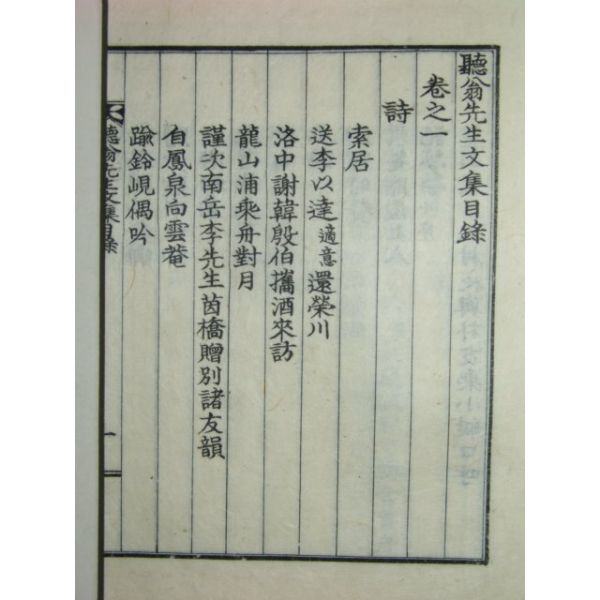 聽翁先生文集目錄
卷之一
詩
索居
送李以達適意還榮川
洛中謝韓殷伯攜酒來訪
龍山浦乘舟對月
謹次南岳李先生茵橋贈別諸友韻
自鳳泉向雲菴
踰鈴峴偶吟
聽翁先生文集目錄
一